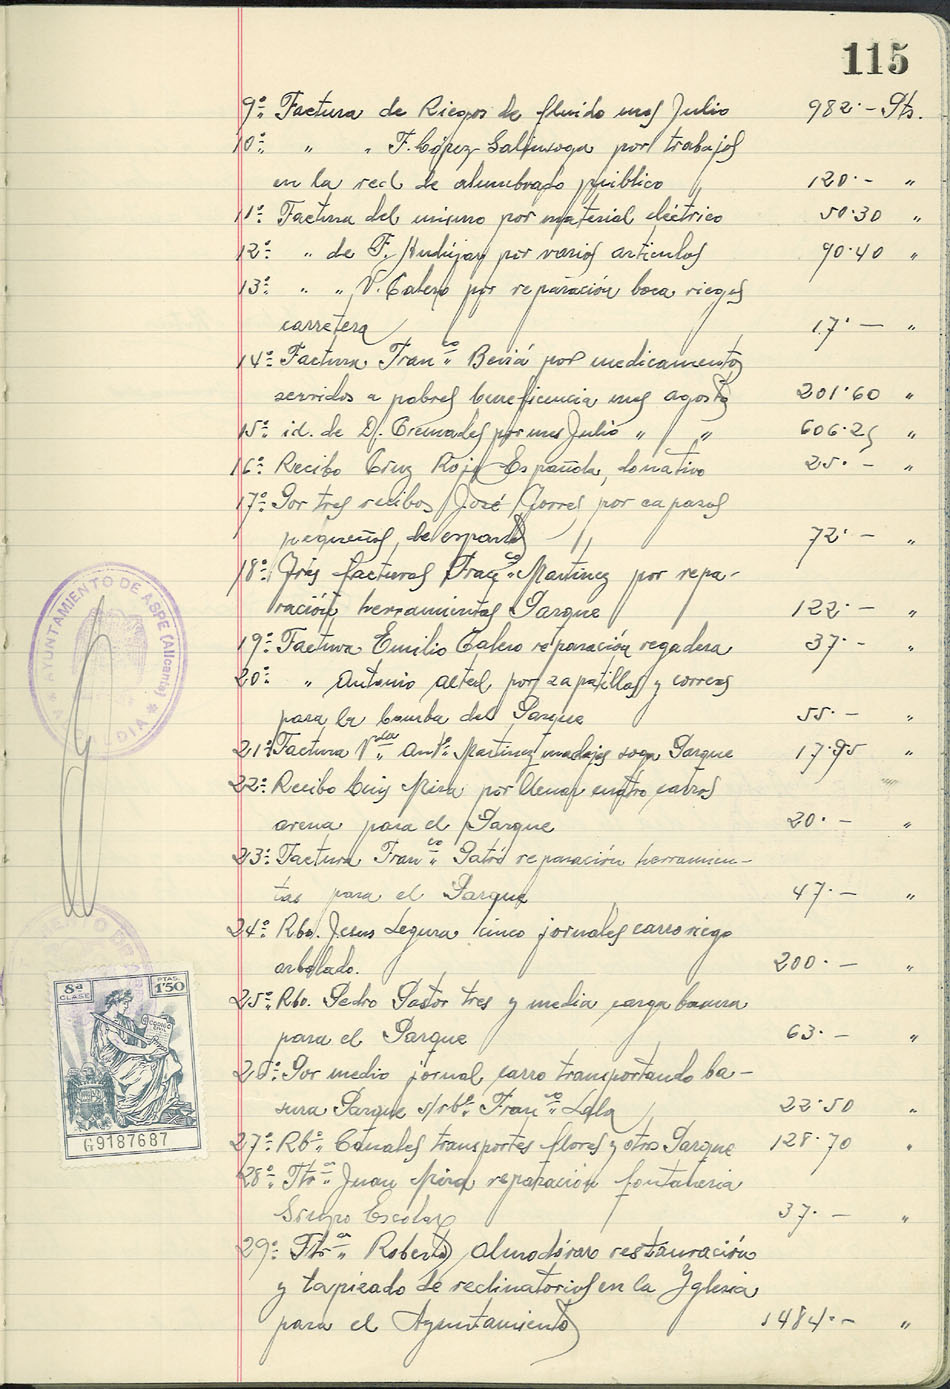 115
9º: Factura de Riegos de fluido mes Julio 982·— Pts.
10º: " " F. López Galinsoga por trabajos
en la red de alumbrado público 120·— "
11º: Factura del mismo por material eléctrico 50·30 "
12º: " de F. por varios artículos 90·40 "
13º: " " V. Calero por reparación boca riegos
carretera 17·— "
14º: Factura Franco Beviá por medicamentos
servidos a pobres beneficencia mes agosto 201·60 "
15º: id. de D. Cremades por mes Julio " " 606·25 "
16º: Recibo Cruz Roja Española, donativo 25·— "
17º: Por tres recibos José Torres por capazos
pequeños, de esparto 72·— "
18º: Tres facturas Franco Martínez por repa-
ración herramientas Parque 122·— "
19º: Factura Emilio Calero reparación regadera 37·— "
20º: " Antonio Alted por zapatillas y correas
para la bomba del Parque 55·— "
21º: Factura Vda Antº Martínez madejas soga Parque 17·95 "
22º: Recibo Luis Mira por cuatro carros
arena para el Parque 20·— "
23º: Factura Franco reparación herramien-
tas para el Parque 47·— "
24º: Rbo. Jesus Segura cinco jornales carro riego
arbolado. 200·— "
25º: Rbo. Pedro Pastor tres y media carga basura
para el Parque 63·— "
26º: Por medio jornal carro transportando ba-
sura Parque s/rbº Franco Lala 22·50 "
27º: Rbº Canales transportes flores y otro Parque 128·70 "
28º: Ftrª Juan Mira reparación fontaneria
Grupo Escolar 37·— "
29º: Ftrª Roberto Almodóvar restauración
y tapizado de reclinatorios en la Yglesia
para el Ayuntamiento 1484·— "
AYUNTAMIENTO DE ASPE (Alicante)
8ª CLASE
PTAS. 1'50
G9187687